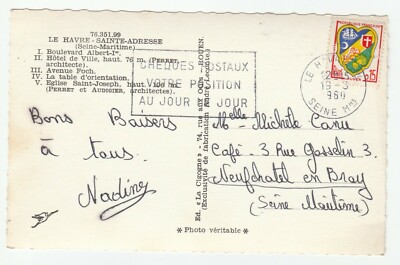 76.351.99
LE HAVRE - SAINTE-ADRESSE
(Seine-Maritime)
I. Boulevard Albert-Iᵉʳ.
II. Hôtel de Ville, haut. 76 m. (PERRET,
architecte).
III. Avenue Foch.
IV. La table d'orientation.
V. Eglise Saint-Joseph, haut. 106 m.
(PERRET et AUDIGIER, architectes).
CHEQUES POSTAUX
VOTRE POSITION
AU JOUR LE JOUR
LE H
19-3
1960
SEINE Mᵐᵉ
15
Bons Baisers
à tous.
Nadine
Ed. « La Cigogne » - 74, rue aux Ours - ROUEN.
(Exclusivité de fabrication André Leconte)
Melle Michèle Canu
Café - 3 Rue Gosselin 3.
Neufchatel en Bray
(Seine Maritime)
* Photo véritable *